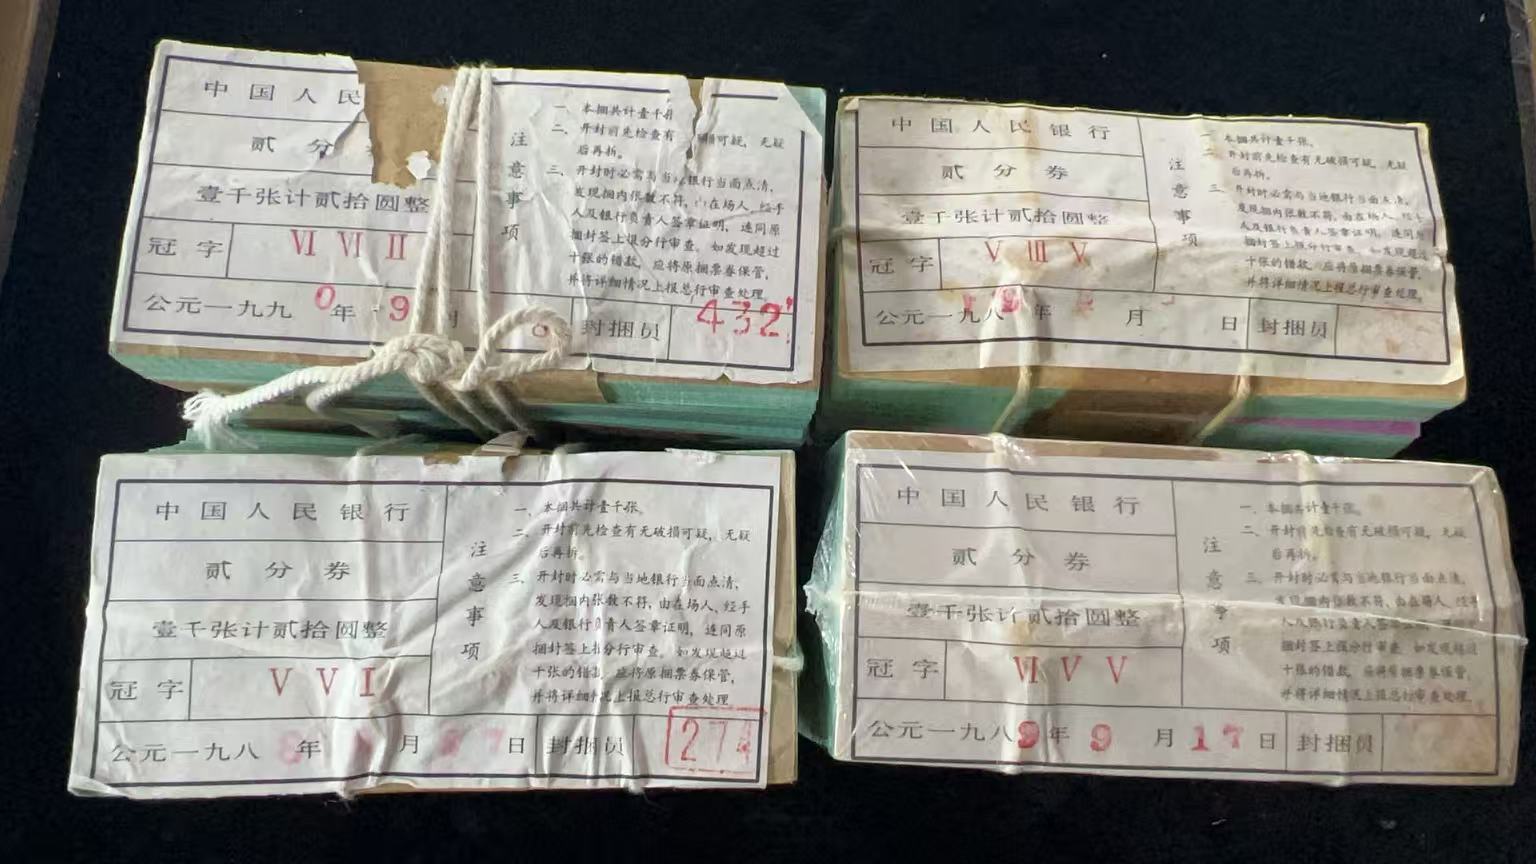 中国人民
贰分
壹千张计贰拾圆整
冠字 VI VI II
公元一九九0年 9月 8 封捆员 432
注意事项
一、本捆共计壹千
二、开封前先检查有 可疑，无疑
后再拆。
三、开封时必需与当 银行当面点清，
发现捆内张数不符， 在场人、经手
人及银行负责人签章证明，连同原
捆封签上报分行审查。如发现超过
十张的错款，应将原捆票券保管，
并将详细情况上报总行审查处理。
中国人民银行
贰分券
壹千张计贰拾圆整
冠字 V III V
公元一九八9年 月 日 封捆员
注意事项
一、本捆共计壹千张。
二、开封前先检查有无破损可疑，无疑
后再拆。
三、开封时必需与当地银行当面点清，
发现捆内张数不符，由在场人、经手
人及银行负责人签章证明，连同原
捆封签上报分行审查。如发现超过
十张的错款，应将原捆票券保管，
并将详细情况上报总行审查处理。
中国人民银行
贰分券
壹千张计贰拾圆整
冠字 V V I
公元一九八8年 月 27日 封捆员 27
注意事项
一、本捆共计壹千张。
二、开封前先检查有无破损可疑，无疑
后再拆。
三、开封时必需与当地银行当面点清，
发现捆内张数不符，由在场人、经手
人及银行负责人签章证明，连同原
捆封签上报分行审查。如发现超过
十张的错款，应将原捆票券保管，
并将详细情况上报总行审查处理
中国人民银行
贰分券
壹千张计贰拾圆整
冠字 VI V V
公元一九八9年 9月 17日 封捆员
注意事项
一、本捆共计壹千张。
二、开封前先检查有无破损可疑，无疑
后再拆。
三、开封时必需与当地银行当面点清，
发现捆内张数不符，由在场人、经手
人及银行负责人签章证明，连同原
捆封签上报分行审查。如发现超过
十张的错款，应将原捆票券保管，
并将详细情况上报总行审查处理